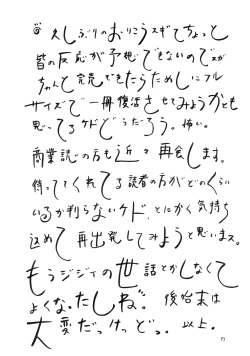 久しぶりのおりこうスギでちょっと
皆の反応が予想できないのでスが
ちゃんと完売できたらためしにフル
サイズで一冊復活させてみようかとも
思ってるケドどうだろう。怖い。
商業誌の方も近々再会します。
待っててくれてる読者の方がどのくらい
いるか判らないケド、とにかく気持ち
込めて再出発してみようと思いまス。
もうジジイの世話とかしなくて
よくなったしね。後始末は
大変だったけどっ。以上。